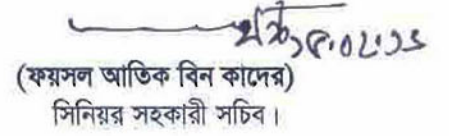 (ফয়সল আতিক বিন কাদের)
সিনিয়র সহকারী সচিব।